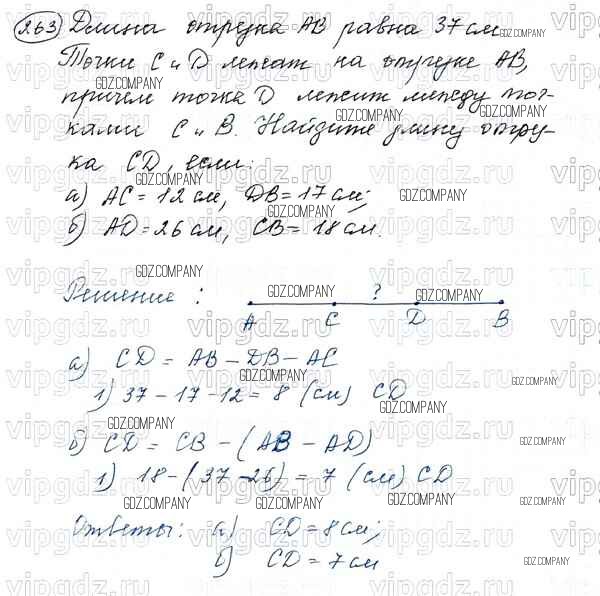 2.63 Длина отрезка АВ равна 37 см
Точки С и D лежат на отрезке АВ,
причем точка D лежит между точ-
ками С и В. Найдите длину отрез-
ка CD, если:
а) АС = 12 см, DB = 17 см;
б) AD = 26 см, СВ = 18 см.
Решение :
?
А С D В
а) CD = АВ – DB – АС
1) 37 – 17 – 12 = 8 (см) CD
б) CD = СВ – (АВ – AD)
1) 18 – (37 – 26) = 7 (см) CD
Ответы: а) CD = 8 см;
б) CD = 7 см
vipgdz.ru
GDZ.COMPANY